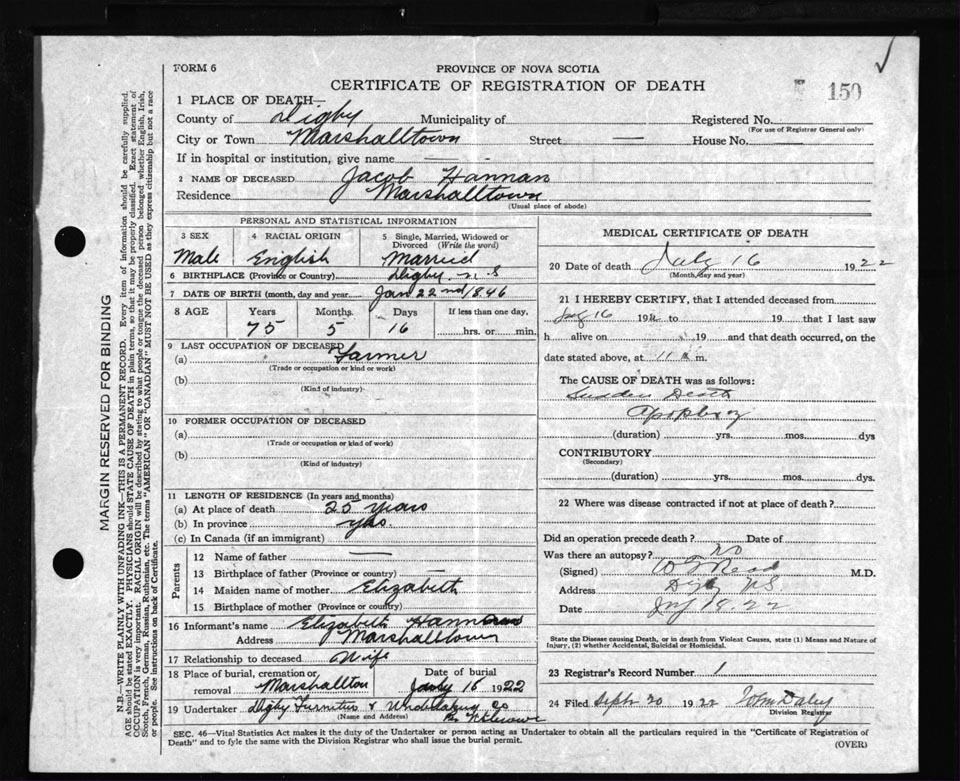 FORM 6
PROVINCE OF NOVA SCOTIA
CERTIFICATE OF REGISTRATION OF DEATH
150
1 PLACE OF DEATH—
County of Digby Municipality of Registered No.
(For use of Registrar General only)
City or Town Marshalltown Street — House No. —
If in hospital or institution, give name — -
2 NAME OF DECEASED Jacob Hannan
Residence Marshalltown
(Usual place of abode)
PERSONAL AND STATISTICAL INFORMATION
3 SEX 4 RACIAL ORIGIN 5 Single, Married, Widowed or Divorced (Write the word)
Male English Married
6 BIRTHPLACE (Province or Country) Digby N.S
7 DATE OF BIRTH (month, day and year) Jan 22nd 1846
8 AGE Years Months Days If less than one day,
75 5 16 hrs. or min.
9 LAST OCCUPATION OF DECEASED
(a) Farmer
(Trade or occupation or kind or work)
(b)
(Kind of industry)
10 FORMER OCCUPATION OF DECEASED
(a)
(Trade or occupation or kind of work)
(b)
(Kind of industry)
11 LENGTH OF RESIDENCE (In years and months)
(a) At place of death 25 years
(b) In province yes
(c) In Canada (if an immigrant)
Parents
12 Name of father —
13 Birthplace of father (Province or country) —
14 Maiden name of mother Elizabeth
15 Birthplace of mother (Province or country)
16 Informant's name Elizabeth
Address Marshalltown
17 Relationship to deceased Wife
18 Place of burial, cremation, or removal Marshallton Date of burial 1922
19 Undertaker Digby Furniture & Undertaking Co
(Name and Address)
MEDICAL CERTIFICATE OF DEATH
20 Date of death July 16 1922
(Month, day and year)
21 I HEREBY CERTIFY, that I attended deceased from
16 19 to 19 that I last saw
h alive on 19 and that death occurred, on the
date stated above, at 11 m.
The CAUSE OF DEATH was as follows:
Sudden Death
Apoplexy
(duration) yrs. mos. dys
CONTRIBUTORY
(Secondary)
(duration) yrs. mos. dys.
22 Where was disease contracted if not at place of death?
Did an operation precede death? Date of
Was there an autopsy? no
(Signed) M.D.
Address Digby N.S.
Date 22
State the Disease causing Death, or in death from Violent Causes, state (1) Means and Nature of Injury, (2) whether Accidental, Suicidal or Homicidal.
23 Registrar's Record Number 1
24 Filed Sept 20 1922 Wm Daley
Division Registrar
SEC. 46—Vital Statistics Act makes it the duty of the Undertaker or person acting as Undertaker to obtain all the particulars required in the "Certificate of Registration of
Death" and to fyle the same with the Division Registrar who shall issue the burial permit.
(OVER)
MARGIN RESERVED FOR BINDING
N.B.—WRITE PLAINLY WITH UNFADING INK—THIS IS A PERMANENT RECORD. Every item of information should be carefully supplied.
AGE should be stated EXACTLY. PHYSICIANS should STATE CAUSE OF DEATH in plain terms, so that it may be properly classified. Exact statement of
OCCUPATION is very important. RACIAL ORIGIN will be described by stating to what people or tongue the deceased person belonged whether English, Irish,
Scotch, French, German, Russian, Ruthenian, etc. The terms "AMERICAN" OR "CANADIAN" MUST NOT BE USED as they express citizenship but not a race
or people. See instructions on back of Certificate.